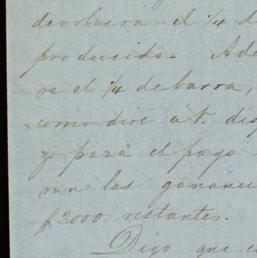 devolverá el 1/4 d
producido. Ade
re el 1/4 de barra,
como dire a V. dis
yo para el pago
ran las gananci
$2000 restantes.
Digo que e